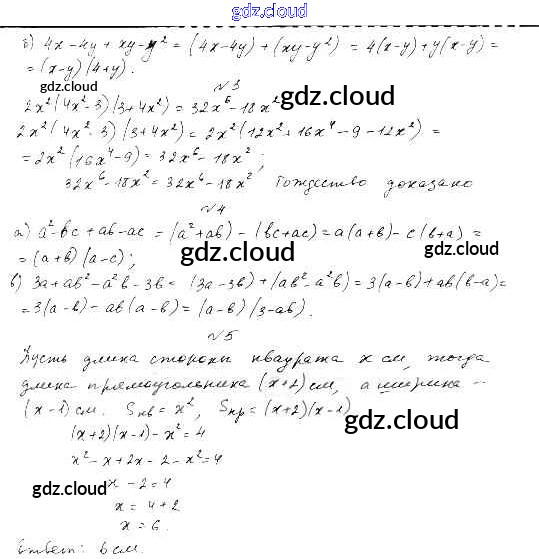 gdz.cloud
б) 4x-4y + xy-y² = (4x-4y) + (xy-y²) = 4(x-y)+y(x-y) =
= (x-y)(4+y).
gdz.cloud
№3
2x²(4x²-3)(3+4x²) = 32x⁶-18x²
gdz.cloud
2x²(4x²-3)(3+4x²) = 2x²(12x²+16x⁴-9-12x²) =
= 2x²(16x⁴-9) = 32x⁶-18x²;
32x⁶-18x² = 32x⁶-18x² Тождество доказано
№4
а) a²-bc+ab-ac = (a²+ab) - (bc+ac) = a(a+b) - c(b+a) =
gdz.cloud gdz.cloud
= (a+b)(a-c);
в) 3a+ab²-a²b-3b = (3a-3b)+(ab²-a²b) = 3(a-b)+ab(b-a) =
= 3(a-b)-ab(a-b) = (a-b)(3-ab).
№5
Пусть длина стороны квадрата x см, тогда
длина прямоугольника (x+2) см, а ширина -
(x-1) см. Sкв = x², Sпр = (x+2)(x-1)
gdz.cloud
(x+2)(x-1)-x² = 4
x²-x+2x-2-x² = 4
x-2 = 4
gdz.cloud gdz.cloud
x = 4+2
x = 6.
Ответ: 6 см.